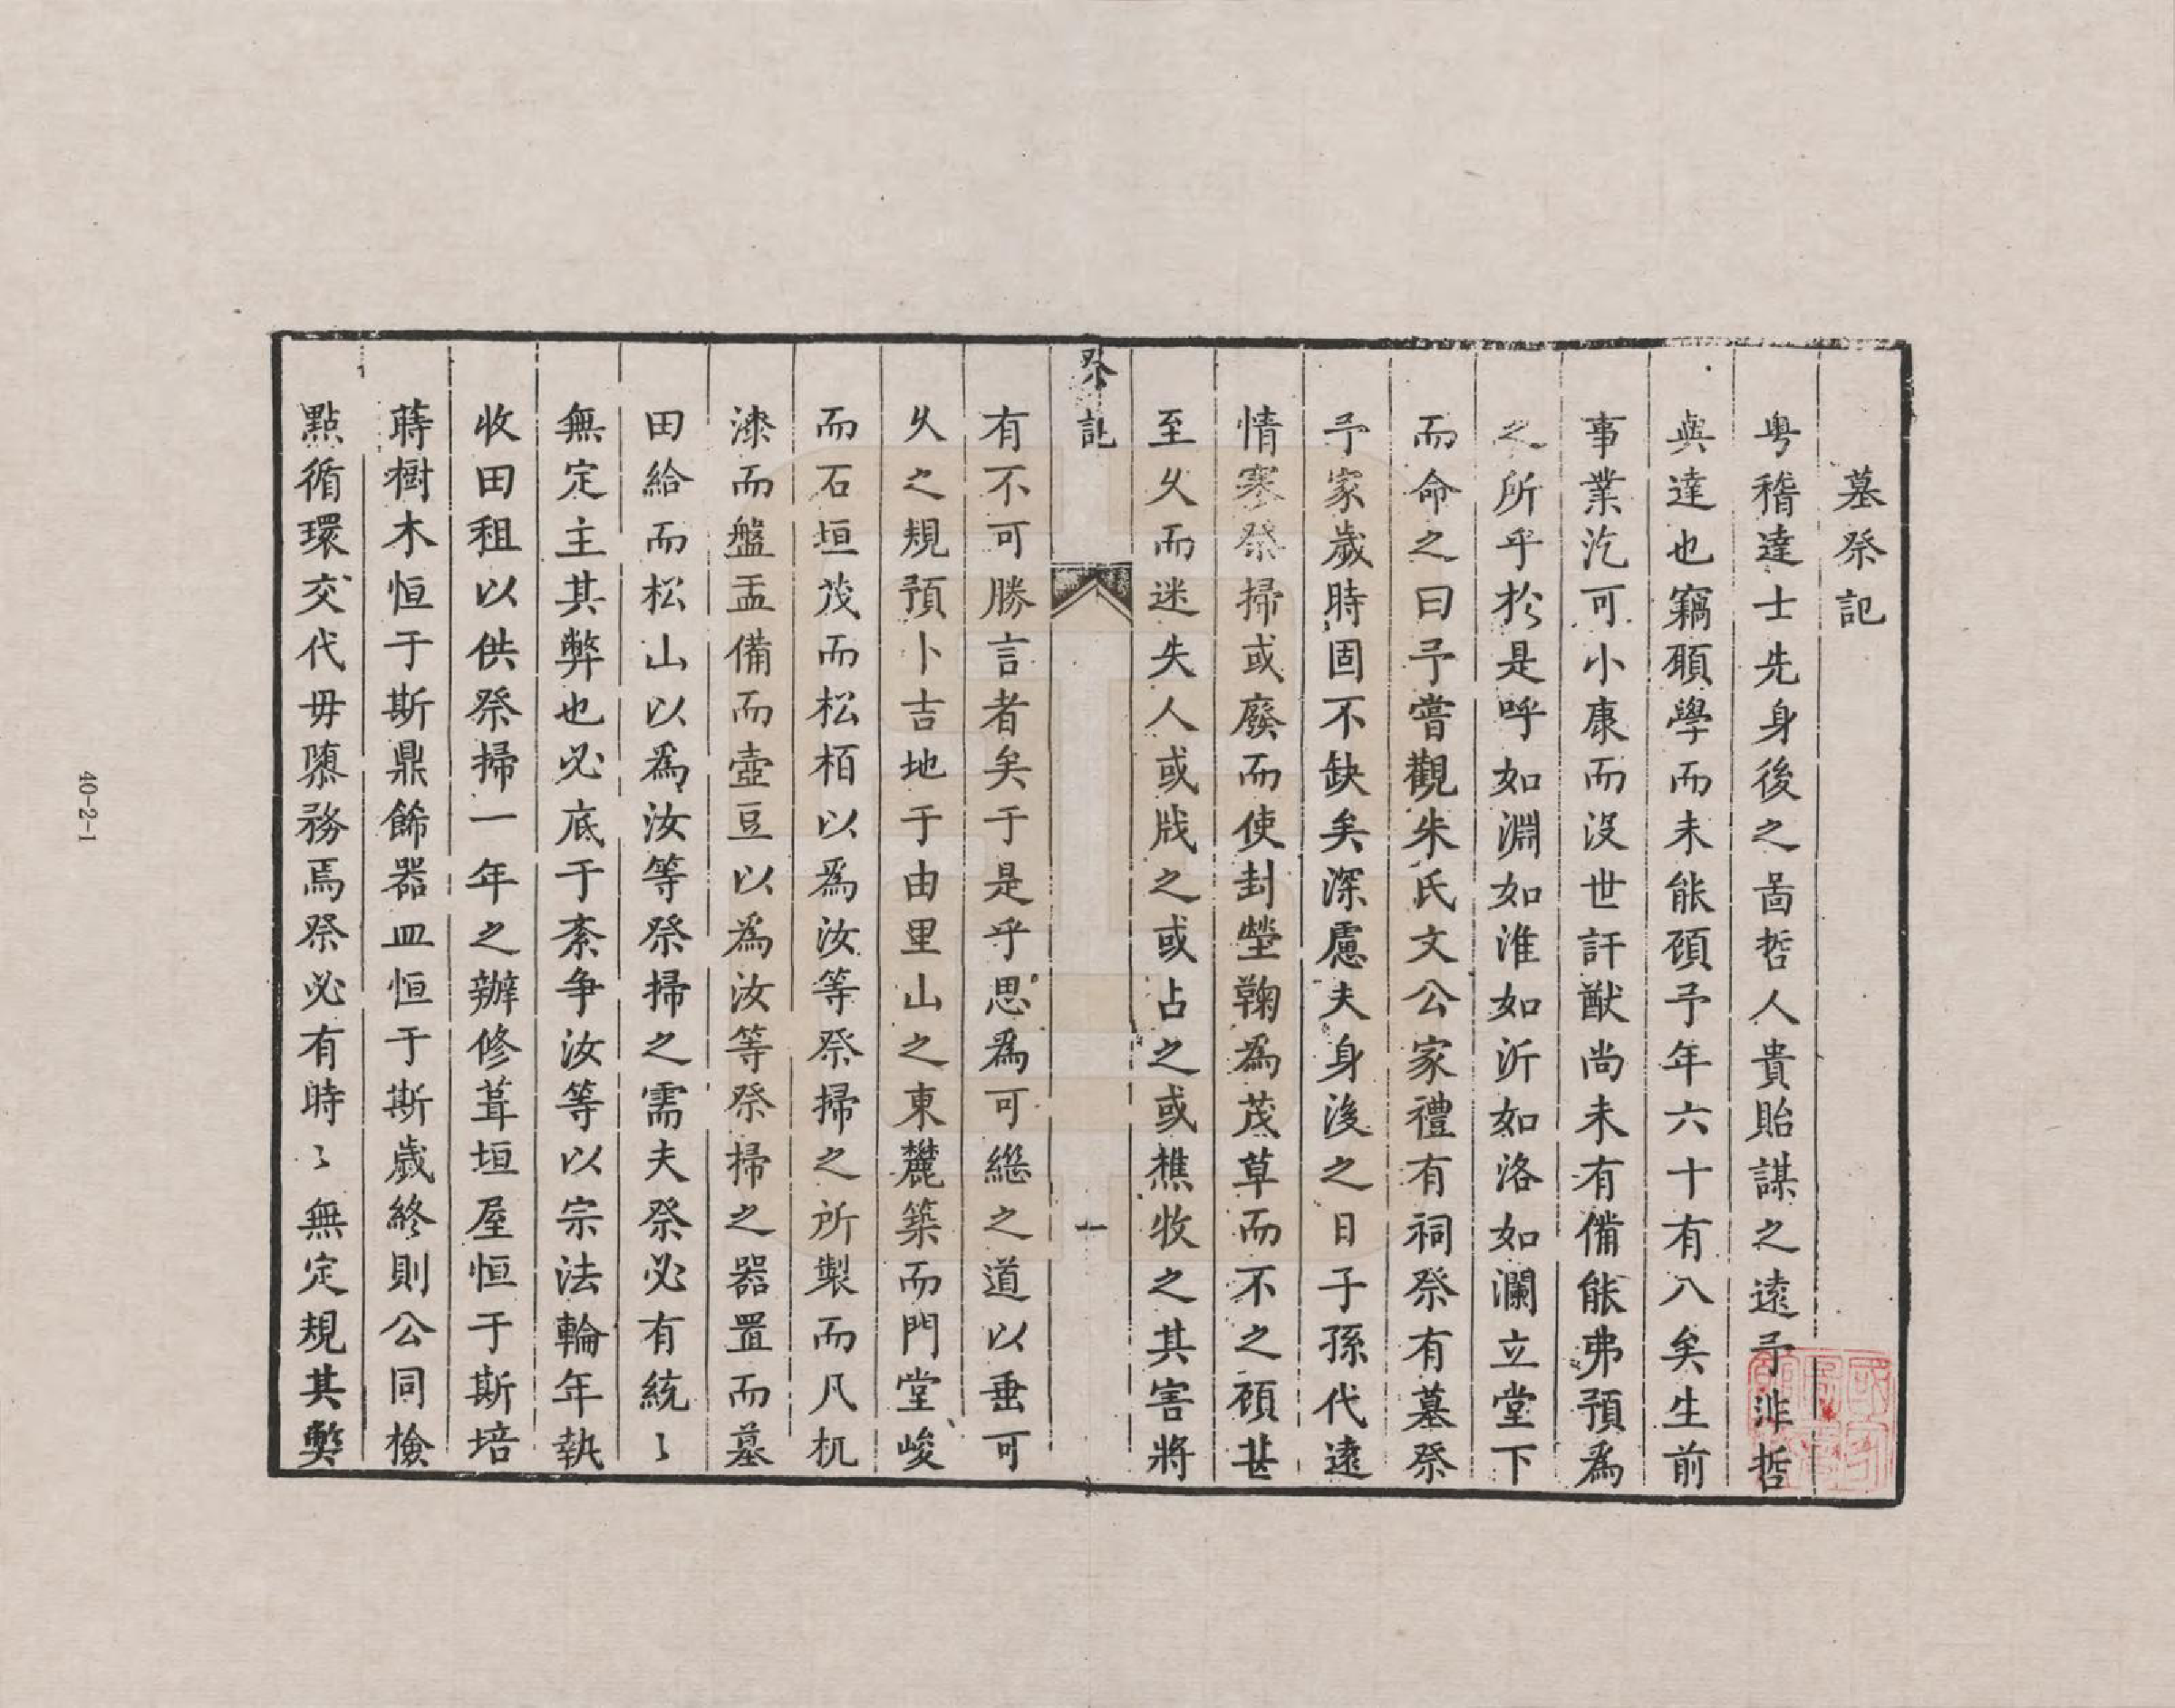 墓祭記
粤稽達士先身後之啚哲人貴貽謀之遠予非哲
與達也竊願學而未能碩予年六十有八矣生前
事業汔可小康而没世訏猷尚未有備能弗預爲
之所乎扵是呼如淵如淮如沂如洛如瀾立堂下
而命之曰予嘗觀朱氏文公家禮有祠祭有墓祭
予家歲時固不缺矣深慮夫身後之日子孫代遠
情寒祭掃或廢而使封塋鞠爲茂草而不之碩甚
至乆而迷失人或戕之或占之或樵牧之其害將
祭記
一
有不可勝言者矣于是乎思爲可繼之道以垂可
乆之規預卜吉地于由里山之東麓築而門堂峻
而石垣茂而松栢以爲汝等祭掃之所製而凡杌
漆而盤盂備而壺豆以爲汝等祭掃之器置而墓
田給而松山以爲汝等祭掃之需夫祭必有統〻
無定主其弊也必底于紊争汝等以宗法輪年執
收田租以供祭掃一年之辦修葺垣屋恒于斯培
蒔樹木恒于斯鼎餙器皿恒于斯歲終則公同檢
點循環交代毋隳務焉祭必有時〻無定規其獘
40-2-1